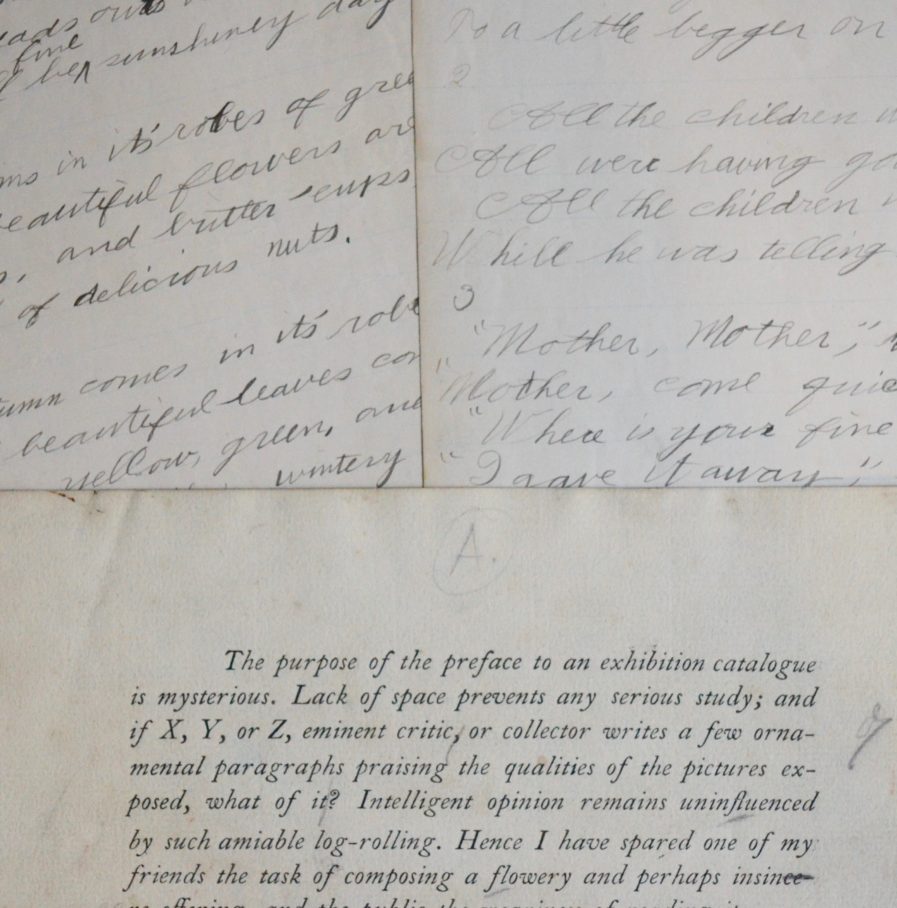 fine
be sunshiney day
in it's robes of gree
beautiful flowers are
, and butter cups
of delicious nuts.
comes in it's robe
beautiful leaves con
yellow, green, and
wintery
To a little begger on
2
All the children w
All were having goo
All the children w
Whill he was telling
3
"Mother, Mother,"
"Mother, come quic
"Where is your fine
"I gave it away,"
A.
The purpose of the preface to an exhibition catalogue
is mysterious. Lack of space prevents any serious study; and
if X, Y, or Z, eminent critic, or collector writes a few orna-
mental paragraphs praising the qualities of the pictures ex-
posed, what of it? Intelligent opinion remains uninfluenced
by such amiable log-rolling. Hence I have spared one of my
friends the task of composing a flowery and perhaps insince-